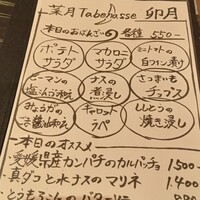 葉月 Tabehasse 卯月
本日のおばんざい⑥ 各種 550-
ポテト
サラダ
マカロニ
サラダ
ミニトマトの
白ワイン煮
ピーマンの
ナスの
煮浸し
さつまいも
チップス
みょうがの
キャロット
ラペ
ししとうの
焼き浸し
本日のオススメ
愛媛県産カンパチのカルパッチョ 1.500-
真ダコと水ナスのマリネ 1.400
とうもろこしの